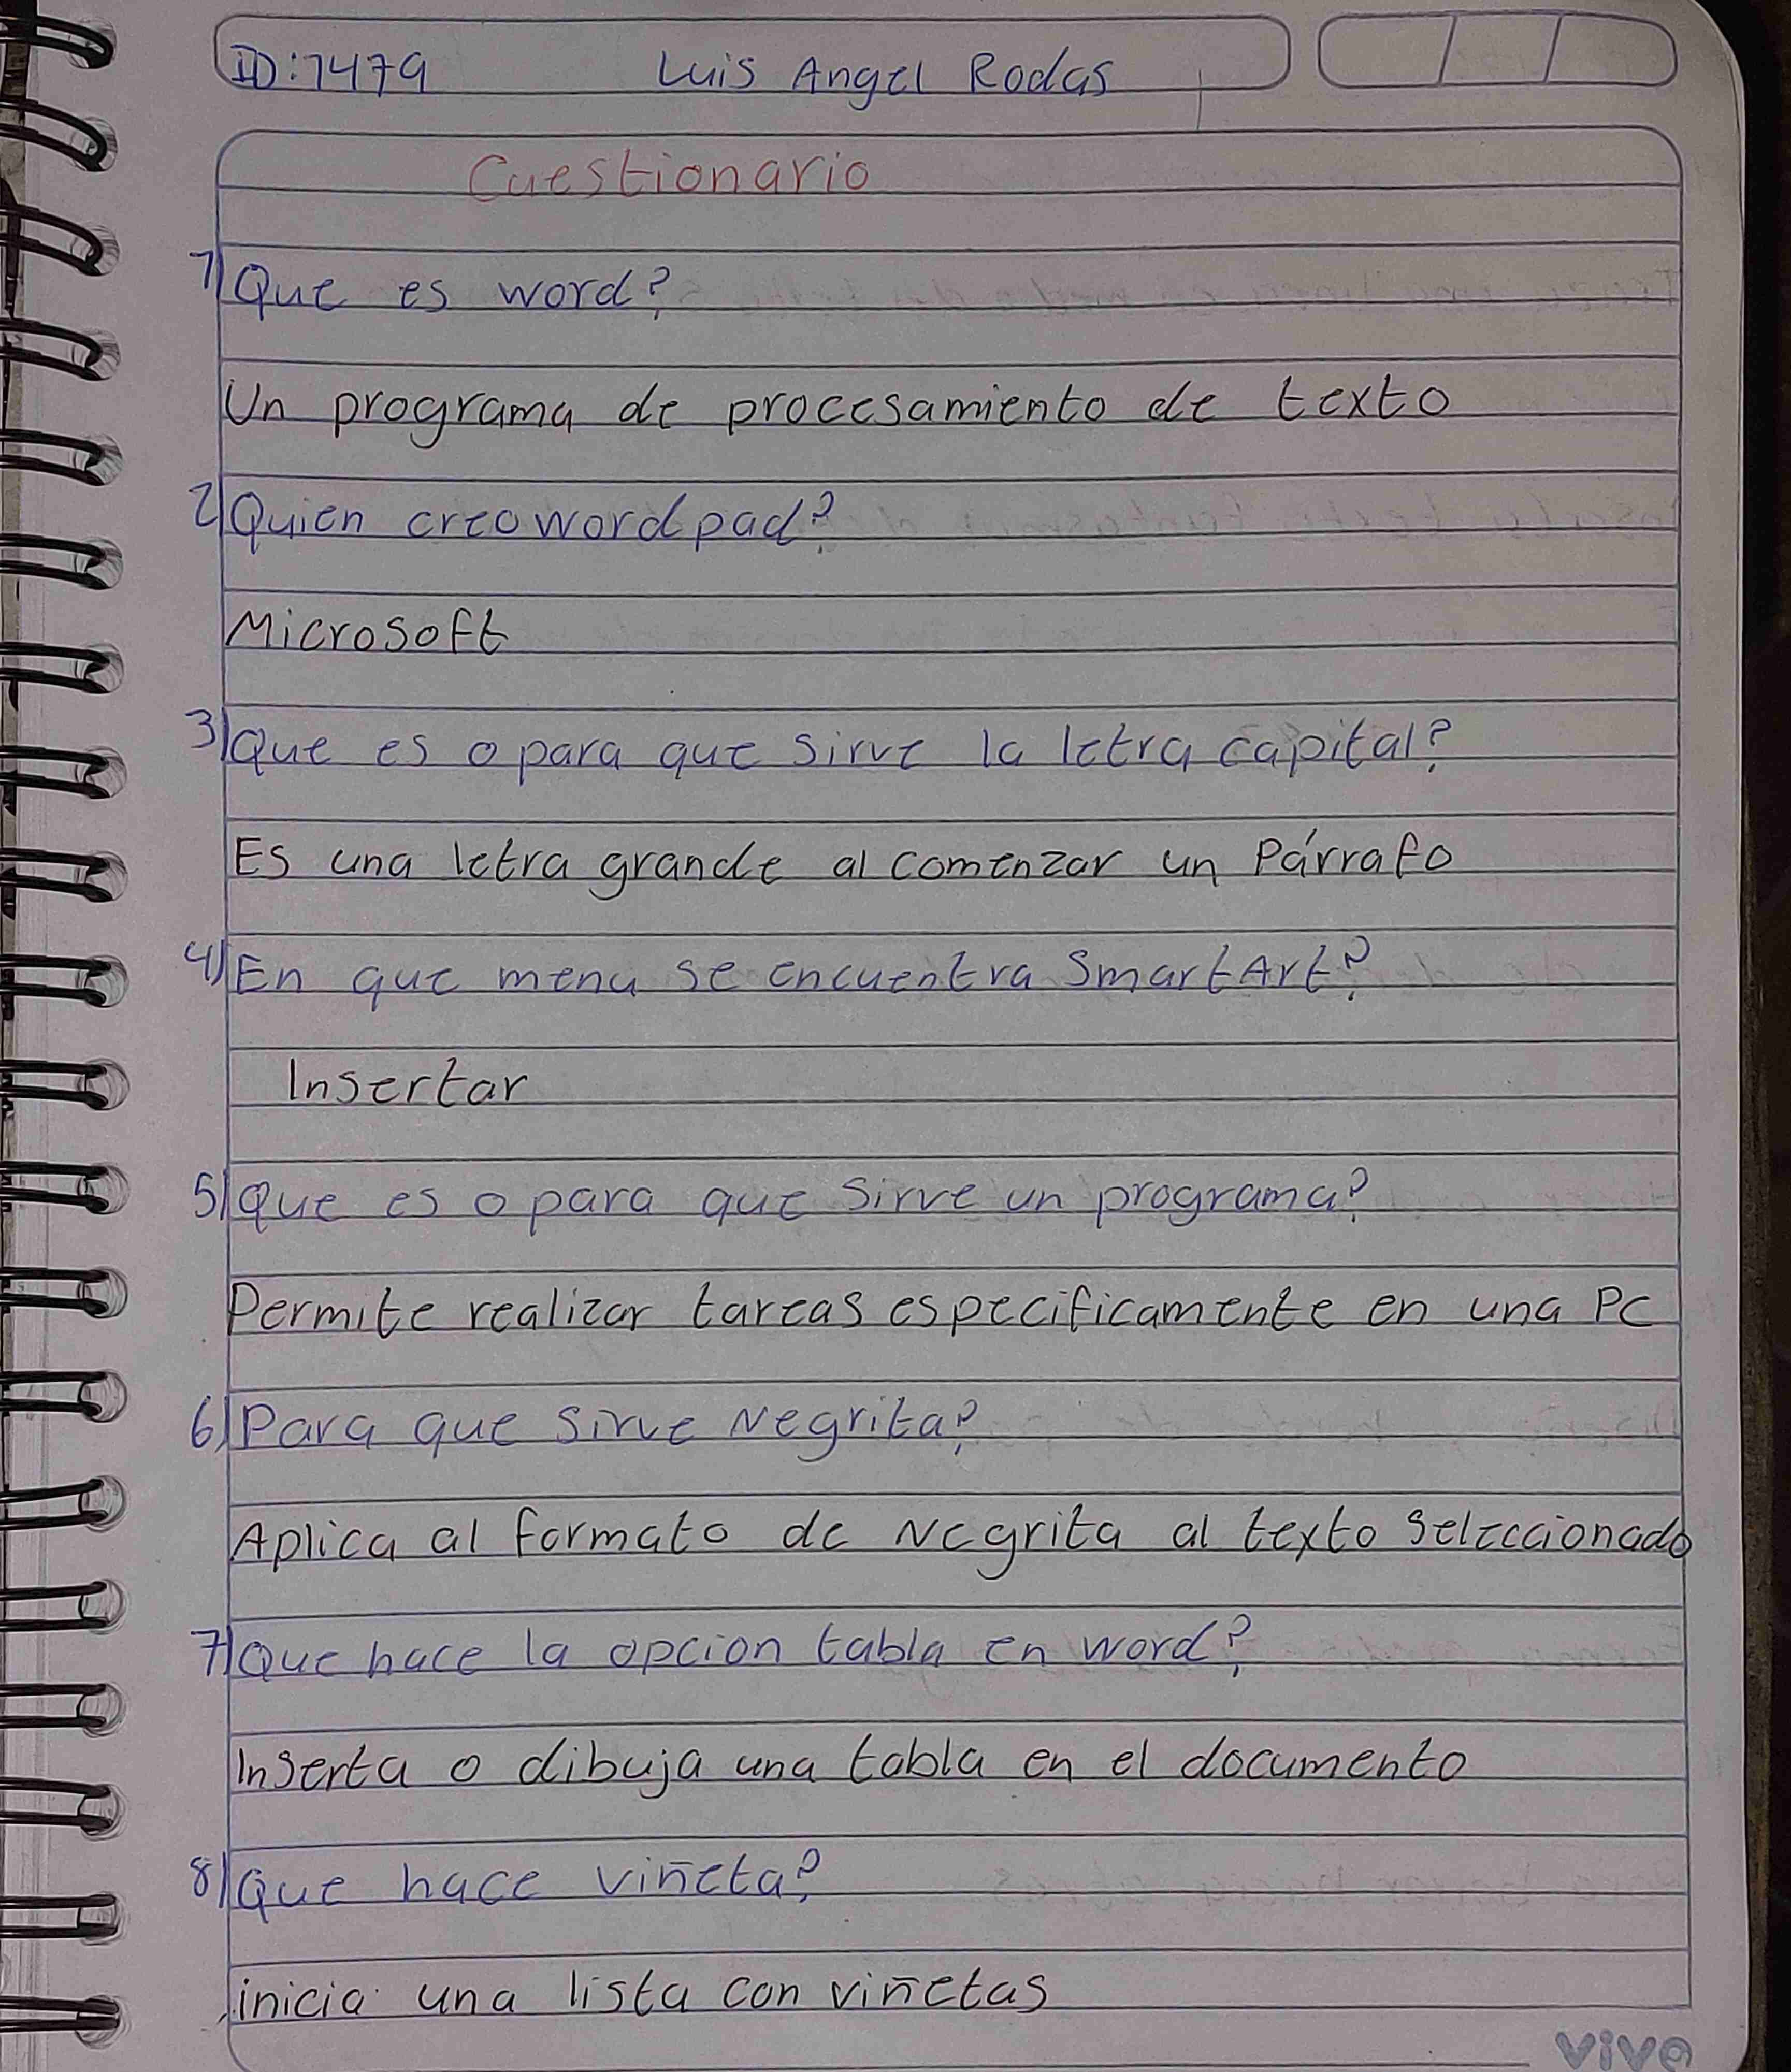 ID:7479 Luis Angel Rodas
Cuestionario
1) Que es word?
Un programa de procesamiento de texto
2) Quien creo wordpad?
Microsoft
3) Que es o para que sirve la letra capital?
Es una letra grande al comenzar un Párrafo
4) En que menu se encuentra SmartArt?
Insertar
5) Que es o para que sirve un programa?
Permite realizar tareas especificamente en una PC
6) Para que sirve Negrita?
Aplica al formato de Negrita al texto seleccionado
7) Que hace la opcion tabla en word?
Inserta o dibuja una tabla en el documento
8) Que hace viñeta?
inicia una lista con viñetas
vive